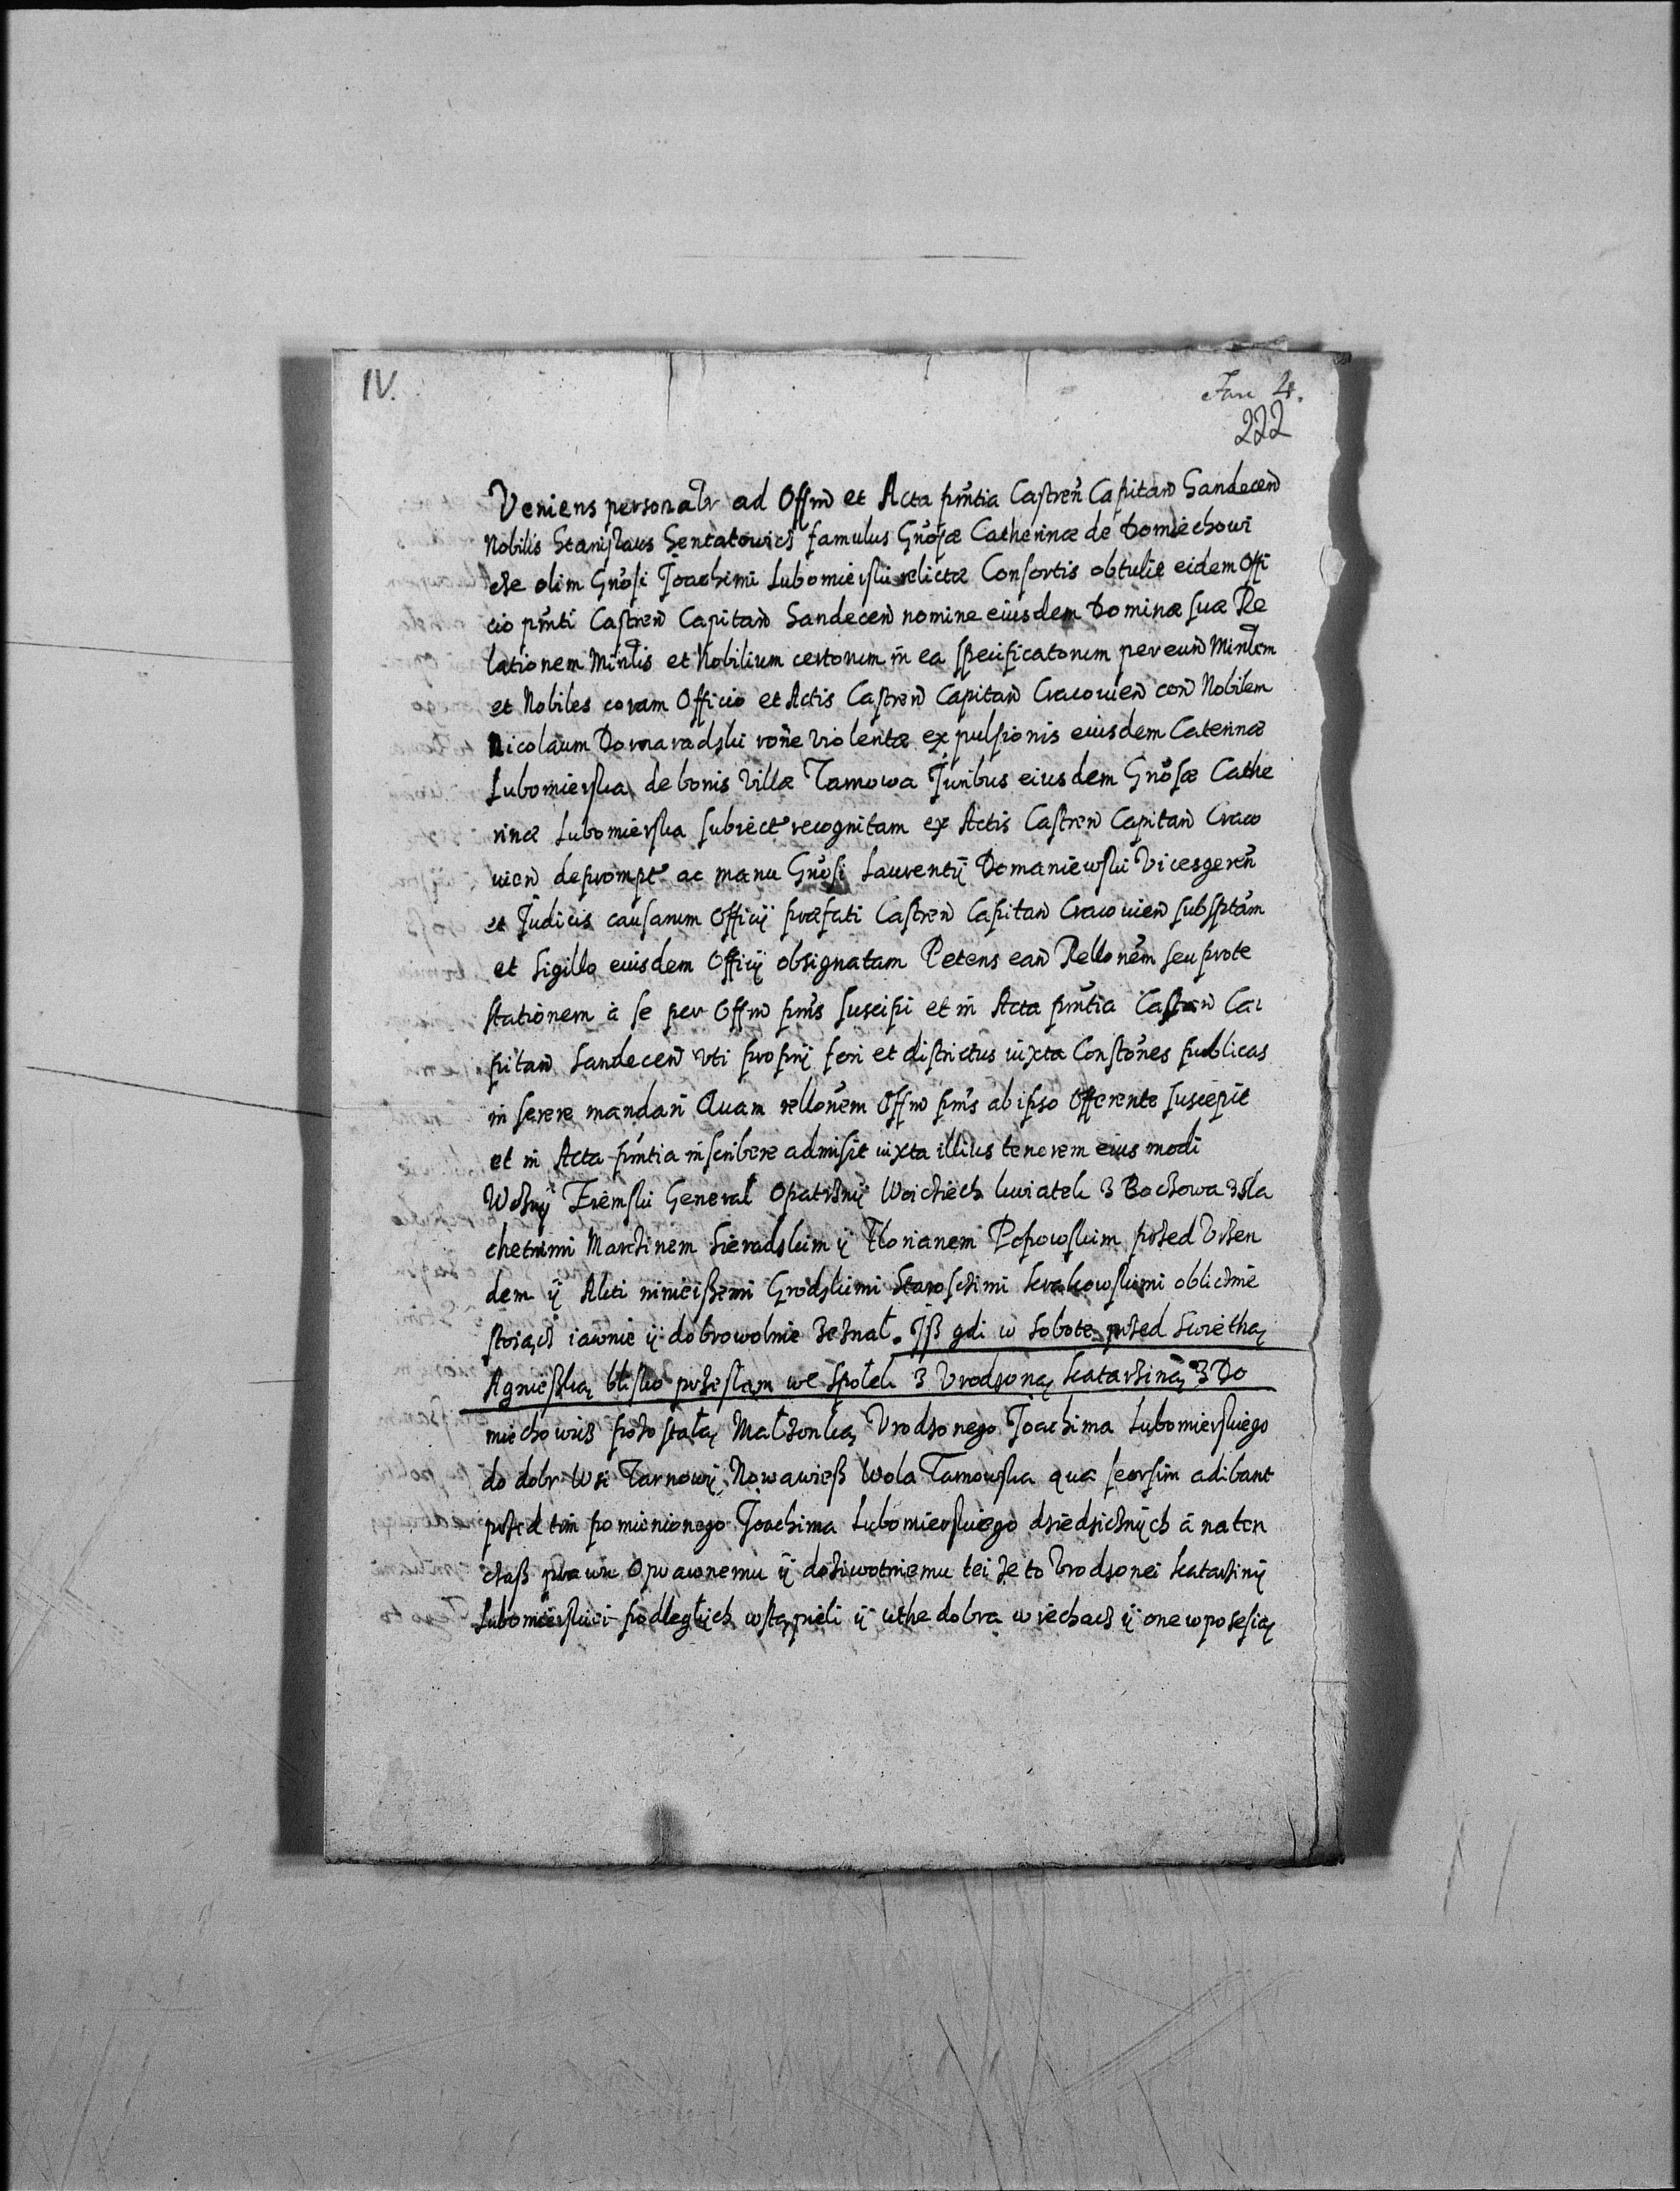 IV.
Jan 4.
222
Veniens personalr ad Offm et Acta pñtia Castreñ Capitañ Sandeceñ
Nobilis Stanislaus Sentatowicz famulus Gnosæ Catherinæ de Domiechowi
cze olim Gnosi Joachimi Lubomierski relictæ Consortis obtulit eidem Offi
cio pñti Castreñ Capitañ Sandeceñ nomine eiusdem Dominæ suæ Re
lationem Minlis et Nobilium certorum in ea specificatorum per euñ Minlem
et Nobiles coram Officio et Actis Castreñ Capitañ Cracouień coñ Nobilem
Nicolaum Domaradzki roñe violentæ expulsionis eiusdem Caterinæ
Lubomierska de bonis villæ Tarnowa Juribus eiusdem Gnosæ Cathe
rinæ Lubomierska subiect recognitam ex Actis Castreñ Capitañ Craco
uień deprompt ac manu Gnosi Laurentij Domaniewski Vicesgereñ
et Judicis causarum Officij præfati Castreñ Capitañ Cracouień subsptam
et Sigillo eiusdem Officij obsignatam Petens eañ Relloñem seu prote
stationem à se per Offm pñs suscipi et in Acta pñtia Castreñ Ca
pitañ Sandeceñ vti proprij fori et districtus iuxta Constoñes publicas
in serere mandari Quam relloñem Offm pñs ab ipso Offerente suscepit
et in Acta pñtia inscribere admisit iuxta illius tenorem eius modi
Wozny Ziemski General Opatrzny Woiciech kwiatek z Bochowa z sla
chetnimi Marcinem Sieradzkim ij Florianem Popowskim przed Vrzen
dem ij Akti ninieiszemi Grodzkimi Staroscimi krakowskimi oblicznie
stoiącz iawnie ij dobrowolnie zeznał. Jsz gdi w Sobote przed Swiethą
Agnieszką blisko przeszłam we społek z Vrodzoną katarziną z Do
miechowicz pozostałą Małzonką Vrodzonego Joachima Lubomierskiego
do dobr Wsi Tarnowy Nowawiesz Wola Tarnowska qua seorsim adibant
przed tim pomienionego Joachima Lubomierskiego dziedzicznych à naten
czasz prawu Oprawnemu ij dozywotniemu tei ze to Vrodzonei katarziny
Lubomierskiei podległych wstąpieli ij wthe dobra wiechacz ij one w posesią